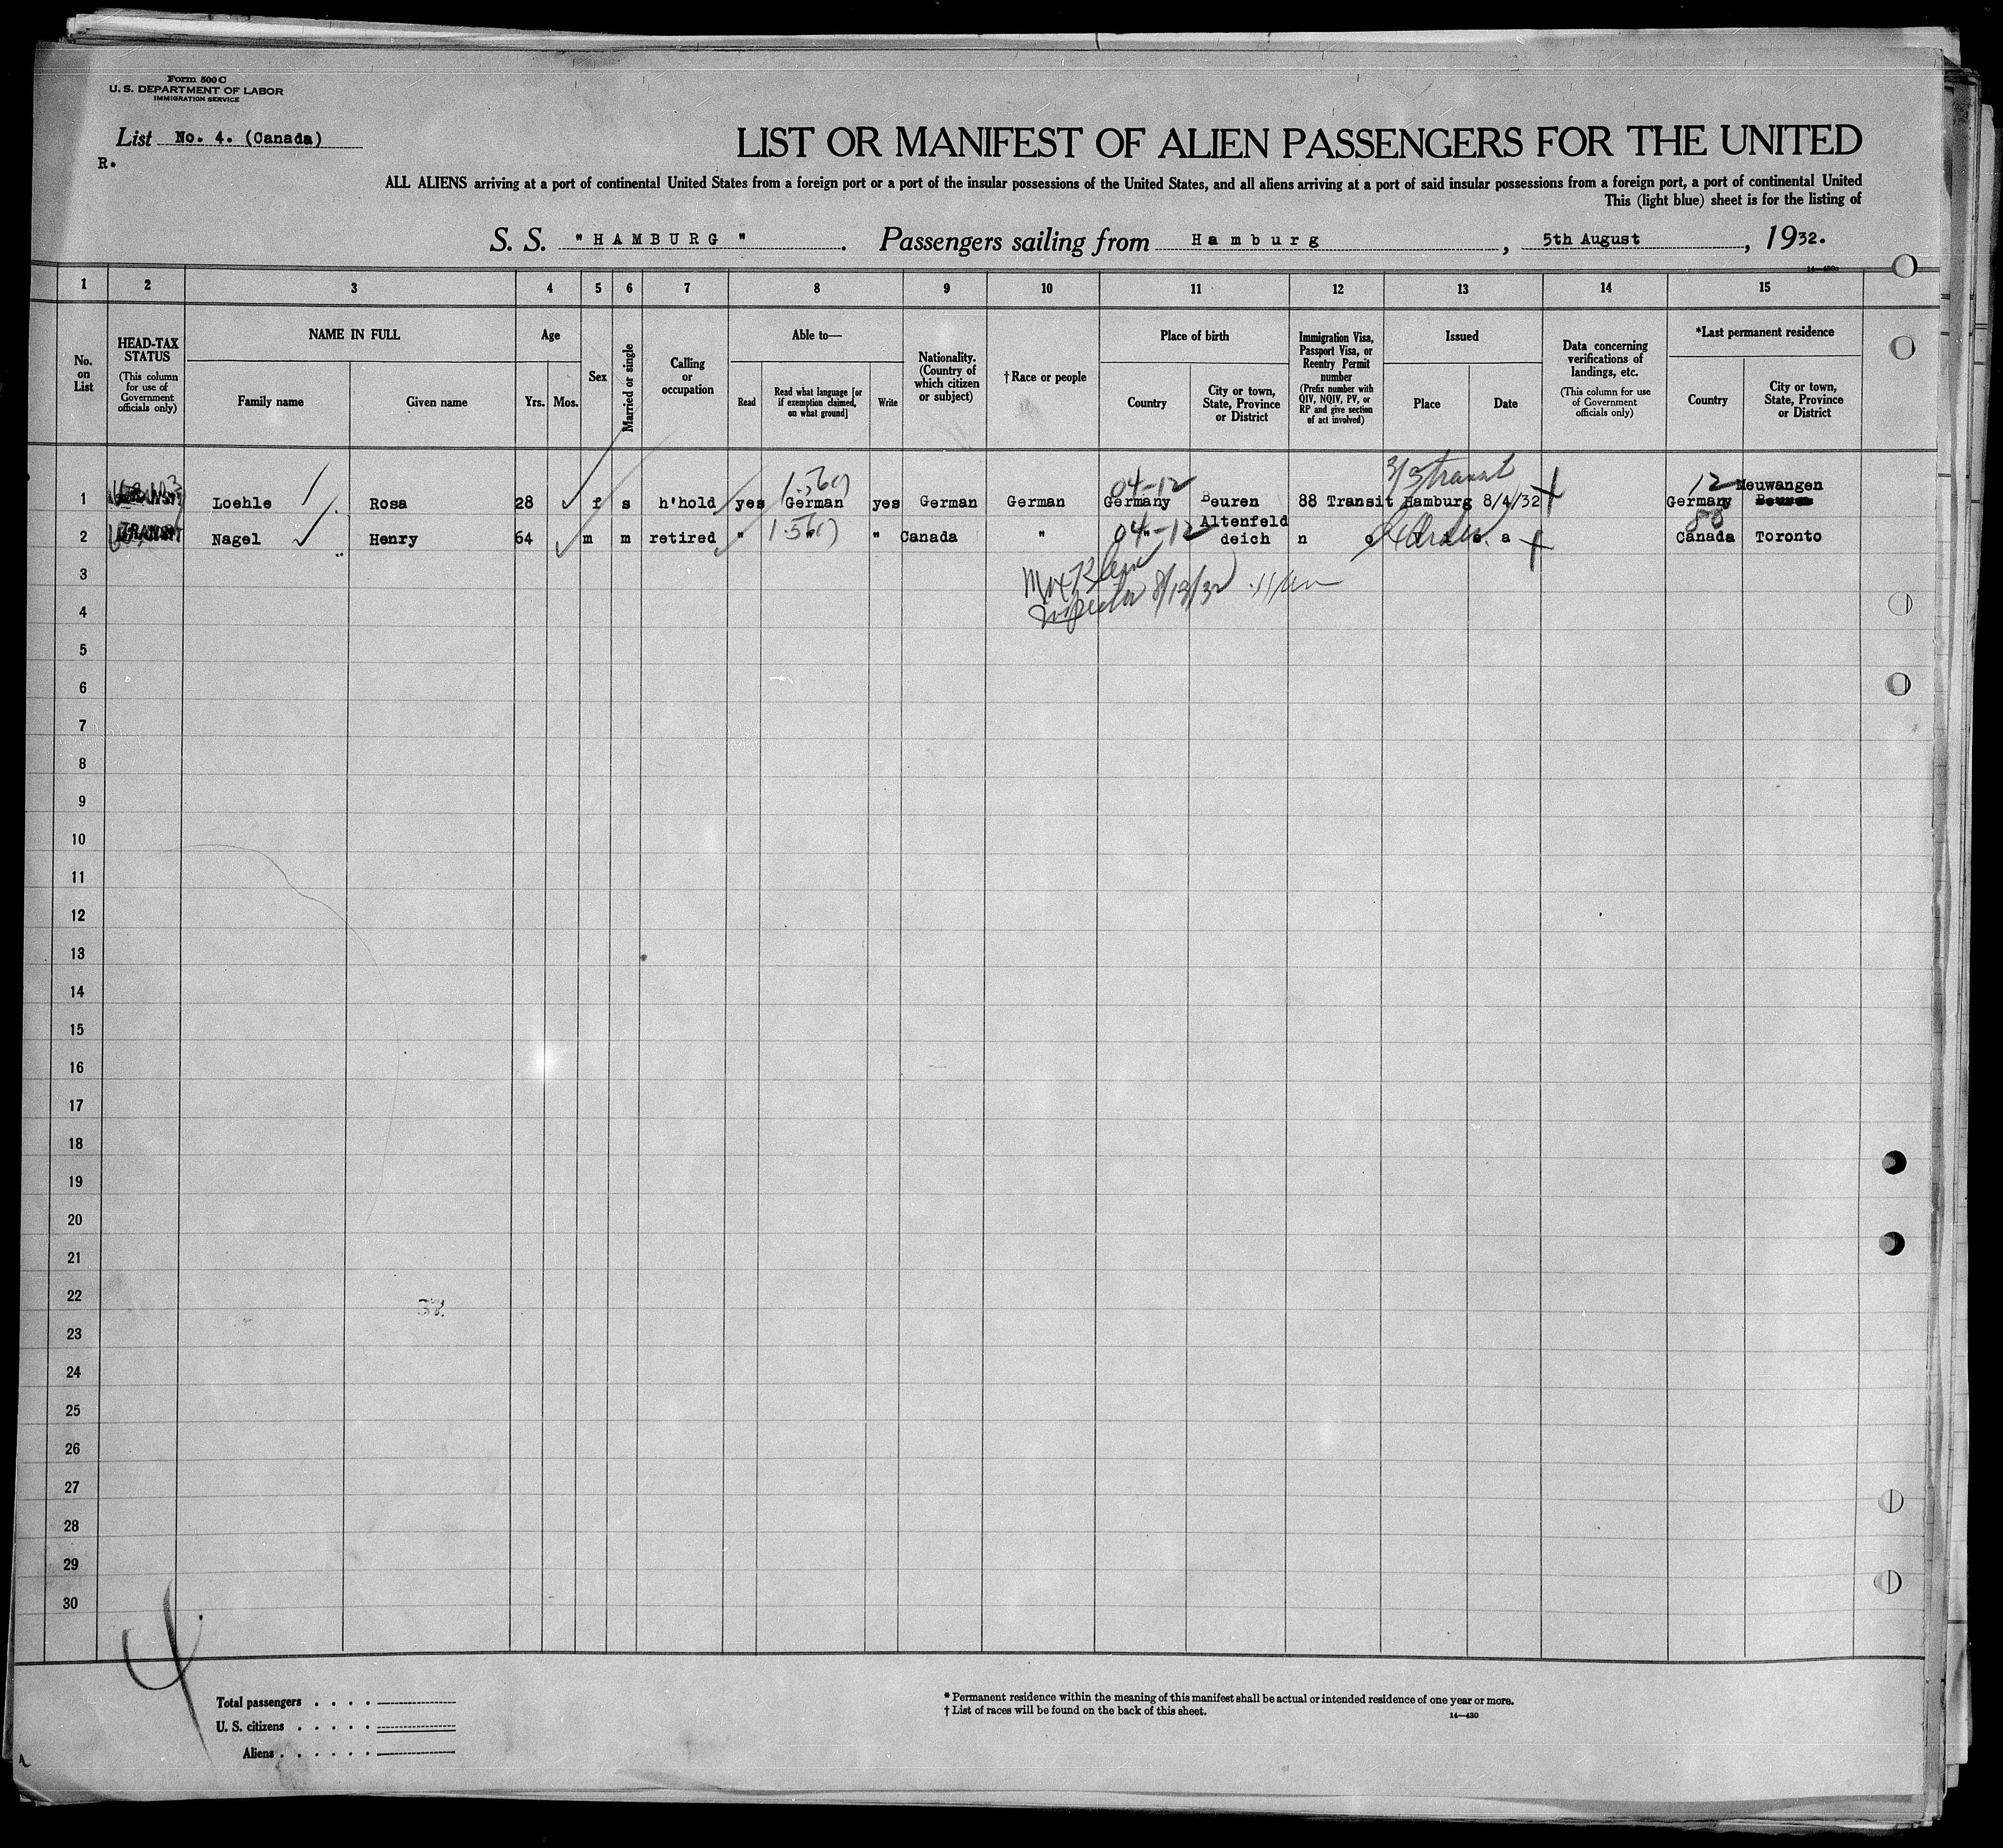 Form 500 C
U. S. DEPARTMENT OF LABOR
IMMIGRATION SERVICE
List No. 4. (Canada)
R.
LIST OR MANIFEST OF ALIEN PASSENGERS FOR THE UNITED
ALL ALIENS arriving at a port of continental United States from a foreign port or a port of the insular possessions of the United States, and all aliens arriving at a port of said insular possessions from a foreign port, a port of continental United
This (light blue) sheet is for the listing of
S. S. "HAMBURG". Passengers sailing from Hamburg, 5th August, 1932.
14—430a
1 2 3 4 5 6 7 8 9 10 11 12 13 14 15
No. on List
HEAD-TAX STATUS
(This column for use of Government officials only)
NAME IN FULL
Family name Given name
Age
Yrs. Mos.
Sex
Married or single
Calling or occupation
Able to—
Read
Read what language [or if exemption claimed, on what ground]
Write
Nationality. (Country of which citizen or subject)
†Race or people
Place of birth
Country
City or town, State, Province or District
Immigration Visa, Passport Visa, or Reentry Permit number
(Prefix number with QIV, NQIV, PV, or RP and give section of act involved)
Issued
Place Date
Data concerning verifications of landings, etc.
(This column for use of Government officials only)
*Last permanent residence
Country
City or town, State, Province or District
3/3 transit
04-12 12 Neuwangen
1 Loehle Rosa 28 f s h'hold yes German yes German German Germany Beuren 88 Transit Hamburg 8/4/32 Germany
04-12 Altenfeld
2 TRANSIT Nagel Henry 64 m m retired " " " Canada " " deich no visa Canada Toronto
3
Inspector 8/13/32
4
5
6
7
8
9
10
11
12
13
14
15
16
17
18
19
20
21
22
23
24
25
26
27
28
29
30
Total passengers . . . .
U. S. citizens . . . . .
Aliens . . . . . .
* Permanent residence within the meaning of this manifest shall be actual or intended residence of one year or more.
† List of races will be found on the back of this sheet.
14—430